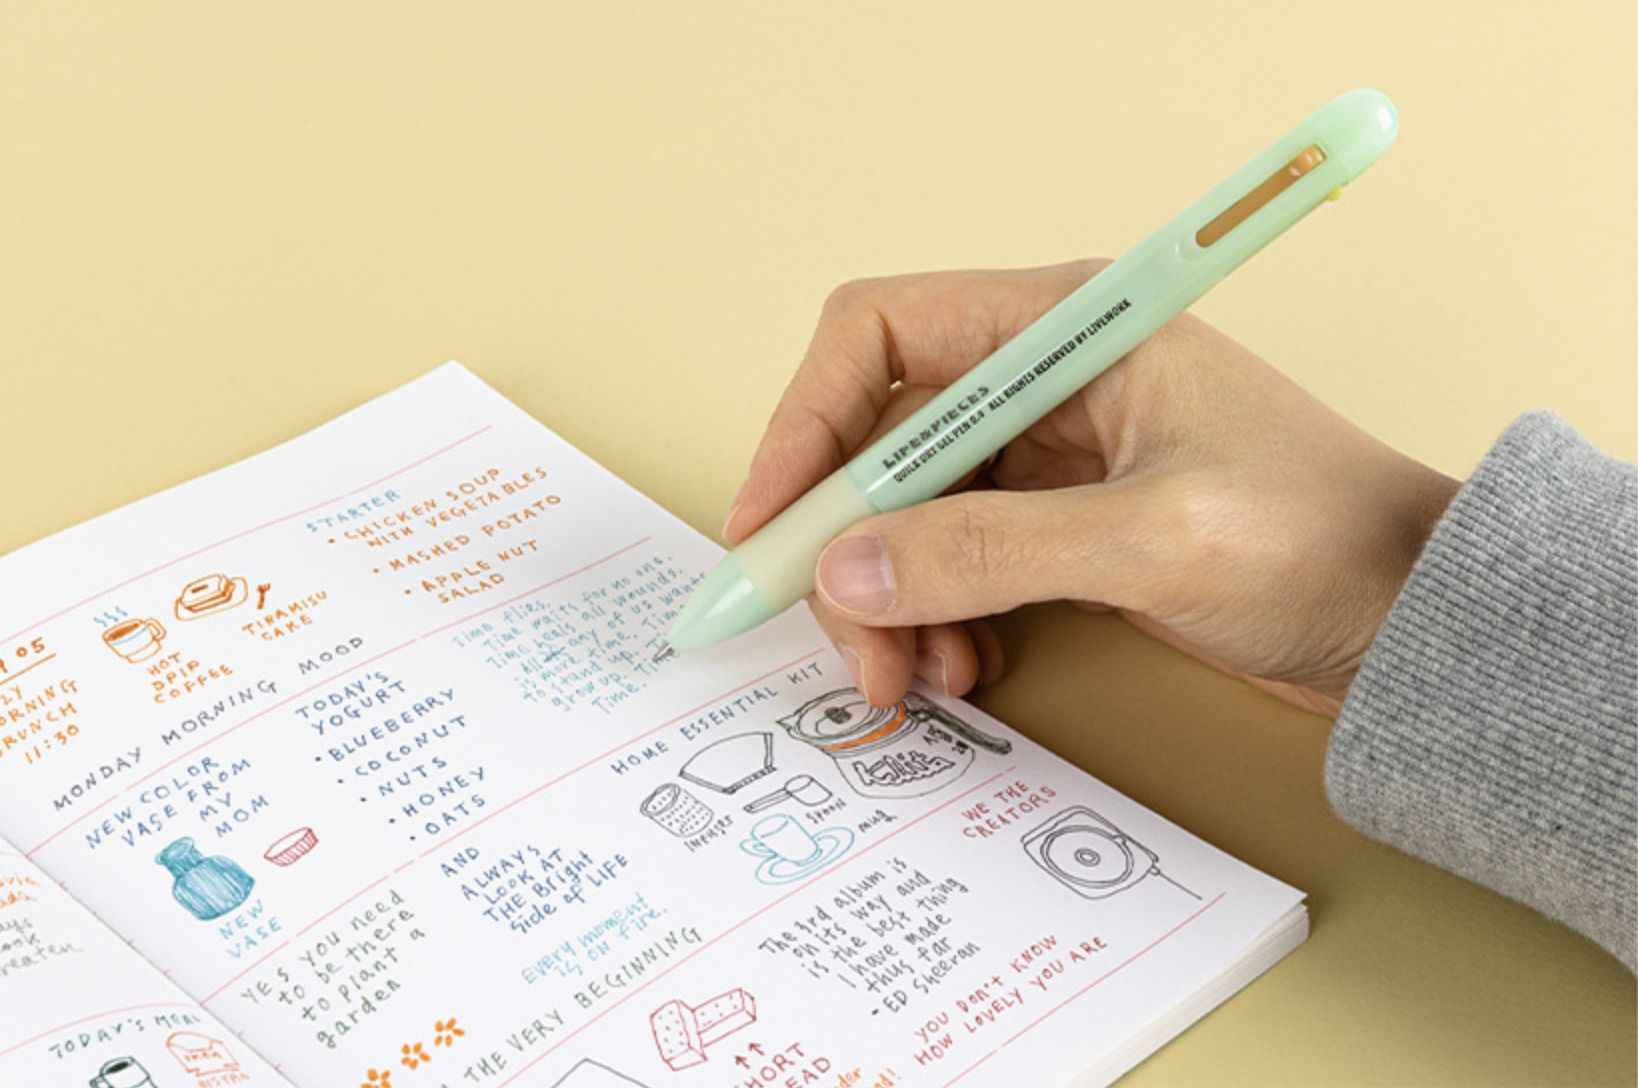 LIFE&PIECES
QUICK DRY GEL PEN 0.4 ALL RIGHTS RESERVED BY LIVEWORK
STARTER
• CHICKEN SOUP
WITH VEGETABLES
• MASHED POTATO
• APPLE NUT
SALAD
TIRAMISU
CAKE
HOT
DRIP
COFFEE
05
11:30
Time flies.
Time waits for no one.
Time heals all wounds.
All any of us wants
is more time. Time
to stand up. 
grow up. 
Time.
MONDAY MORNING MOOD
NEW COLOR
VASE FROM
MY
MOM
NEW
VASE
TODAY'S
YOGURT
• BLUEBERRY
• COCONUT
• NUTS
• HONEY
• OATS
HOME ESSENTIAL KIT
Spoon
mug
AND
ALWAYS
LOOK AT
THE Bright
Side of LIFE
Every moment
is on fire.
WE THE
CREATORS
YES you need
to be there
to plant a
garden
The 3rd album is
on its way and
is the best thing
I have made
thus far
- ED Sheeran
THE VERY BEGINNING
YOU DON'T KNOW
HOW LOVELY YOU ARE
TODAY'S
IKEA